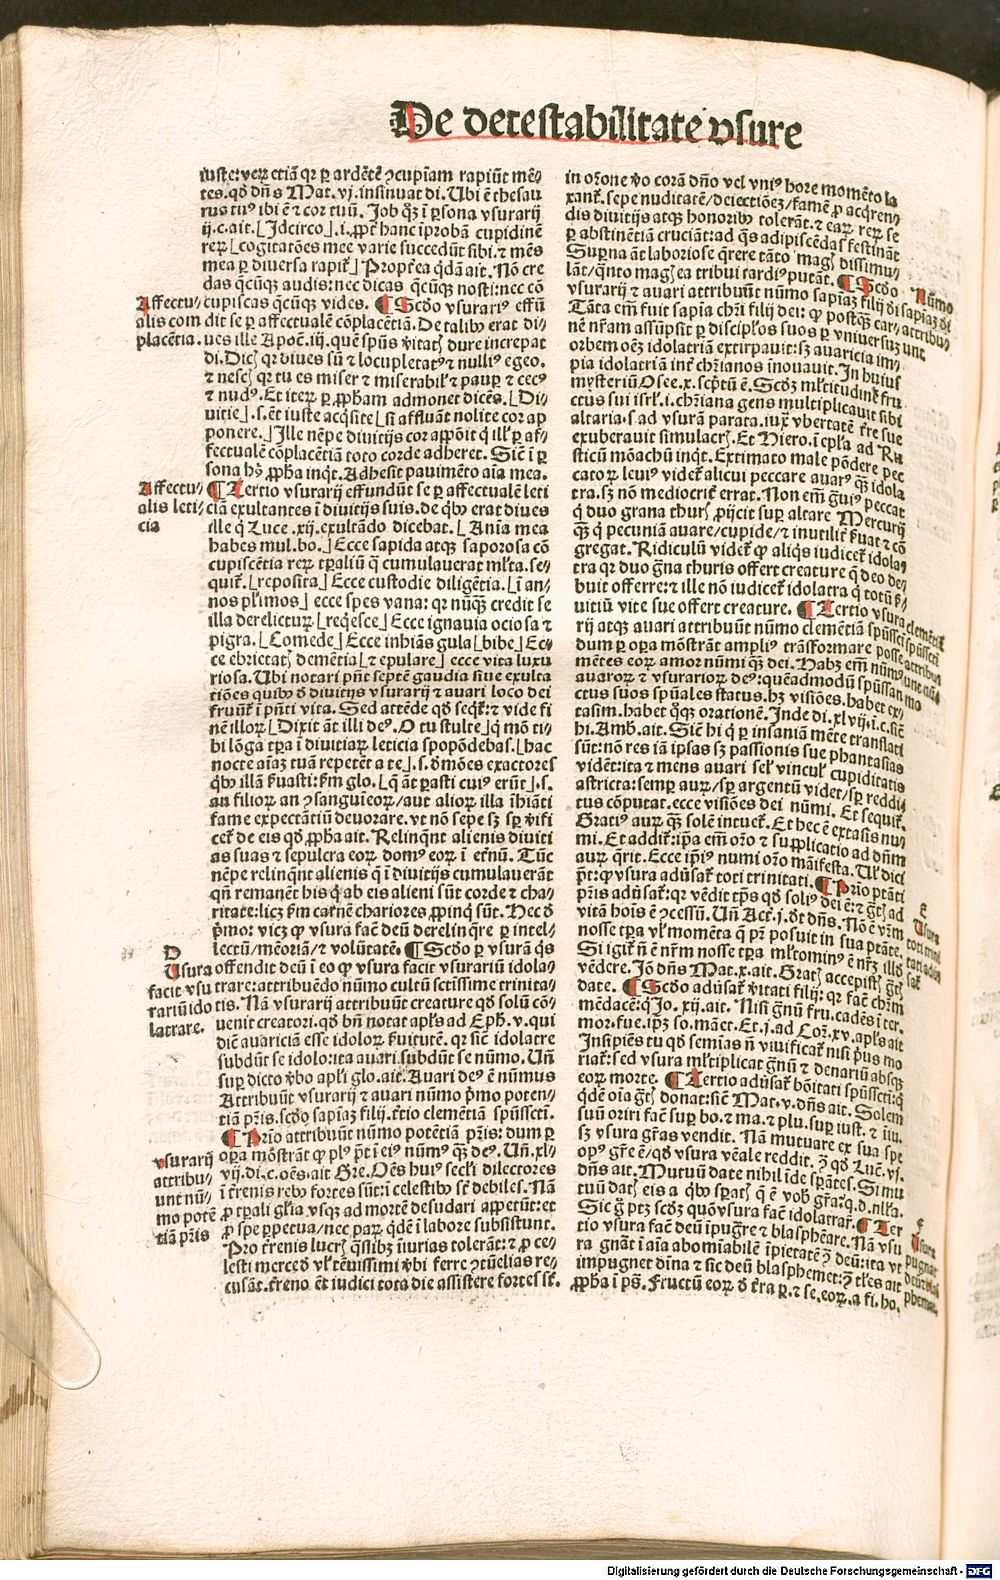 De detestabilitate vsure
iuste: verꝝ etiã qꝛ ꝑ ardẽtẽ ꝯcupiam rapiũt mẽ-
tes. qđ dñs Mat. vj. insinuat di. Ubi ẽ thesau
rus tuꝰ ibi ẽ ⁊ cor tuũ. Job qꝫ ĩ ꝑsona vsurarij
ij. c. ait. [Idcirco]. i. ꝓpt̃ hanc iprobã cupidinẽ
reꝝ [cogitatões mee varie succedũt sibi. ⁊ mẽs
mea ꝑ diuersa rapit̃] Propt̃ea qdã ait. Nõ cre
das qcũqꝫ audis: nec dicas qcũqꝫ nosti: nec cõ
cupiscas qcũqꝫ vides. ¶ Scđo vsurariꝰ effũ
dit se ꝑ affectualẽ cõplacẽtiã. De talibꝰ erat di-
ues ille Apoc̃. iij. quẽ spũs v̾itatꝭ dure increpat
di. Dicꝭ qꝛ diues sũ ⁊ locupletatꝰ ⁊ nulliꝰ egeo.
⁊ nescꝭ qꝛ tu es miser ⁊ miserabil̃ ⁊ pauꝑ ⁊ cecꝰ
⁊ nudꝰ. Et iteꝝ ꝑ ꝓpham admonet dicẽs. [Di-
uitie]. s. ẽt iuste acq̃site [si affluãt nolite cor ap
ponere.] Ille nẽpe diuitijs cor appõit q̇ ill̃ ꝑ af-
fectualẽ cõplacẽtiã toto corde adheret. Sic̃ ĩ ꝑ
sona hꝰ ꝓpha inqt. Adhesit pauimẽto aĩa mea.
¶ Tertio vsurarij effundũt se ꝑ affectualẽ leti
ciã exultantes ĩ diuitijs suis. de qbꝰ erat diues
ille q̇ Luce. xij. exultãdo dicebat. [Anĩa mea
habes mul. bo.] Ecce sapida atqꝫ saporosa cõ
cupiscẽtia reꝝ tꝑaliũ q̃ cumulauerat ml̃ta. se-
quit̃. [reposita] Ecce custodie diligẽtia. [ĩ an-
nos pl̃imos] ecce spes vana: qꝛ nũqꝫ credit se
illa derelictuꝝ [reqesce] Ecce ignauia ociosa ⁊
pigra. [Comede] Ecce inhiãs gula [bibe] Ec-
ce ebrietatꝭ demẽtia [⁊ epulare] ecce vita luxu
riosa. Ubi notari pñt septẽ gaudia siue exulta
tiões quibꝰ đ diuitijs vsurarij ⁊ auari loco dei
fruũt̃ ĩ pñti vita. Sed attẽde qđ seqt̃: ⁊ vide fi
nẽ illoꝝ [Dixit aũt illi deꝰ. O tu stulte] q̇ mõ ti-
bi lõga tꝑa ĩ diuitiaꝝ leticia spopõdebas. [hac
nocte aĩaꝫ tuã repetẽt a te]. s. đmões exactores
qbꝰ illã s̃uasti: ẜm glo. [q̃ ãt ꝑasti cuiꝰ erũt]. s.
an filioꝝ an ꝯsanguĩeoꝝ/ aut alioꝝ illa ĩhiãti
fame expectãtiũ deuorare. vt nõ sepe sꝫ sꝑ v̾ifi
cet̃ de eis qđ ꝓpha ait. Relinqnt alienis diuiti
as suas ⁊ sepulcra eoꝝ domꝰ eoꝝ ĩ et̃nũ. Tũc
nẽpe relinqnt alienis q̃ ĩ diuitijs cumulauerãt
qñ remanẽt his q̇ ab eis alieni sũt corde ⁊ cha-
ritate: licꝫ ẜm carnẽ chariores ꝓpinq̇ sũt. Hec đ
p̾mo: vicꝫ ꝙ vsura fac̃ deũ derelinqre ꝑ intel-
lectũ/ mẽoriã/ ⁊ volũtatẽ. ¶ Scđo ꝑ vsurã qs
offendit deũ ĩ eo ꝙ vsura facit vsurariũ idola-
trare: attribuẽdo nũmo cultũ sctissime trinita-
tis. Nã vsurarij attribuũt creature qđ solũ cõ-
uenit creatori. qđ bñ notat apl̃s ad Eph̃. v. qui
dic̃ auariciã esse idoloꝝ s̃uitutẽ. qꝛ sic̃ idolatre
subdũt se idolo: ita auari subdũt se nũmo. Uñ
suꝑ dicto v̾bo apl̃i glo. ait. Auari deꝰ ẽ nũmus
Attribuũt vsurarij ⁊ auari nũmo p̾mo poten-
tiã pr̃is. scđo sapiaꝫ filij. t̾tio clemẽtiã spũsscti.
¶ Prio attribuũt nũmo potẽtiã pr̃is: dum ꝑ
oꝑa mõstrãt ꝙ plꝰ pt̃ ĩ eiꝰ nũmꝰ qꝫ deꝰ. Uñ. xl-
vij. di. c. oẽs. ait Gre. Oẽs huiꝰ secl̃i dilectores
ĩ t̾renis rebꝰ fortes sũt: ĩ celestibꝰ st̃ debiles. Nã
ꝓ tꝑali gl̃ia vsqꝫ ad mortẽ desudari appetũt: et
ꝓ spe ꝑpetua/ nec paꝝ qdẽ ĩ labore subsistunt.
Pro t̾renis lucrꝭ qslibꝫ iiurias tolerãt: ⁊ ꝓ ce-
lesti mercede vl̃ t̾euissimi v̾bi ferre ꝯtũelias re-
cusãt. t̾reno ẽt iudici tota die assistere fortes st̃.
Affectu-
alis com
placẽtia.
Affectu-
alis leti-
cia
D
Usura
facit vsu
rariũ ido
latrare.
vsurarij
attribu-
unt nũ-
mo potẽ
tiã pr̃is
in oꝛone v̾o corã dño vel vniꝰ hore momẽto la
xant̃. sepe nuditatẽ/ deiectiões/ famẽ ꝓ acqren-
dis diuitijs atqꝫ honoribꝰ tolerãt. ⁊ eaꝝ reꝝ se
ꝑ abstinẽtiã cruciãt: ad qs adipiscẽdas festinãt
Supꝛna ãt laboriose qrere tãto magꝭ dissimu-
lãt/ qnto magꝭ ea tribui tardiꝰ putãt. ¶ Scđo
vsurarij ⁊ auari attribuũt nũmo sapiaꝫ filij dei
Tãta em̃ fuit sapia chr̃i filij dei: ꝙ postqꝫ car-
nẽ nr̃am assũpsit ꝑ discipl̃os suos ꝑ vniuersuꝫ
orbem oẽꝫ idolatriã extirpauit: sꝫ auaricia im-
pia idolatriã int̾ chr̃ianos inouauit. In huiuſ
mysteriũ Osee. x. scptũ ẽ. Scđꝫ ml̃titudinẽ fru
ctus sui isrl̃. i. chr̃iana gens multiplicauit sibi
altaria. s. ad vsurã parata. iuxꝰ vbertatẽ t̾re sue
exuberauit simulacrꝭ. Et Hiero. ĩ epl̃a ad Ru
sticũ mõachũ inqt. Extimato male põdere pec
catoꝝ leuiꝰ videt̃ alicui peccare auarꝰ qꝫ idola
tra. sꝫ nõ mediocrit̃ errat. Non em̃ g̃uiꝰ peccat
q̇ duo grana thurꝭ ꝓijcit suꝑ altare Mercurij
qꝫ q̇ pecuniã auare/ cupide/ ⁊ inutilit̃ s̃uat ⁊ cõ
gregat. Ridiculũ videt̃ ꝙ aliqs iudicet̃ idola-
tra qꝛ duo g̃na thuris offert creature q̃ deo de-
buit offerre: ⁊ ille nõ iudicet̃ idolatra q̇ totũ s̃-
uitiũ vite sue offert creature. ¶ Tertio vsura
rij atqꝫ auari attribuũt nũmo clemẽtiã spũsscti
dum ꝑ oꝑa mõstrãt ampliꝰ trãsformare posse
mẽtes eoꝝ amor nũmi qꝫ dei. Habꝫ em̃ nũmꝰ
auaroꝝ ⁊ vsurarioꝝ deꝰ: quẽadmodũ spũssan
ctus suos spũales status. hꝫ visiões. habet ex-
tasim. habet qqꝫ orationẽ. Inde di. xlvij. i. c. sic̃
hi. Amb. ait. Sic̃ hi q̇ ꝑ insaniã mẽte translati
sũt: nõ res iã ipsas sꝫ passionis sue phantasias
vidẽt: ita ⁊ mens auari sel̃ vincul̃ cupiditatis
astricta: semꝑ auꝝ/ sꝑ argentũ videt/ sꝑ reddi
tus cõputat. ecce visiões dei nũmi. Et sequit̃.
Gratiꝰ auꝝ qꝫ solẽ intuet̃. Et hec ẽ extasis nu-
mi. Et addit̃: ipa em̃ oꝛo ⁊ supplicatio ad dñm
auꝝ q̃rit. Ecce ip̃iꝰ numi oꝛo mãifesta. Ul̃ dici
pt̃: ꝙ vsura adũsat̃ toti trinitati. ¶ Prio ptãti
pr̃is adũsat̃: qꝛ vẽdit tꝑs qđ soliꝰ dei ẽ: ⁊ gr̃tꝭ ad
vitã hois ẽ ꝯcessũ. Uñ Act̃. j. đt dñs. Nõ ẽ vr̃m
nosse tꝑa vl̃ momẽta q̃ pr̃ posuit in sua ptãte.
Si igit̃ ñ ẽ nr̃m nosse tꝑa ml̃tominꝰ ẽ nr̃ꝫ illđ
vẽdere. Jõ dñs Mat. x. ait. Gratꝭ accepistꝭ g̃tꝭ
date. ¶ Scđo adũsat̃ v̾itati filij: qꝛ fac̃ chr̃m
mẽdacẽ: q̇ Jo. xij. ait. Nisi g̃nũ fru. cadẽs ĩ ter.
mor. fue. ipꝫ so. mãet. Et. j. ad Coꝝ. xv. apl̃s ait
Insipiẽs tu qđ semĩas ñ viuificat̃ nisi p̾us mo
riat̃: sed vsura ml̃tiplicat g̃nũ ⁊ denariũ absqꝫ
eoꝝ morte. ¶ Tertio adũsat̃ bõitati spũsscti: q̇
qdẽ oĩa g̃tꝭ donat: sic̃ Mat. v. dñs ait. Solem
suũ oriri fac̃ suꝑ bo. ⁊ ma. ⁊ plu. suꝑ iust. ⁊ iiu.
sꝫ vsura gr̃as vendit. Nã mutuare ex sua spe
opꝰ gr̃e ẽ/ qđ vsura vẽale reddit. ꝯ qđ Luc̃. vj.
dñs ait. Mutuũ date nihil ĩde sꝑãtes. Si mu
tuũ datꝭ eis a qbꝰ sꝑatꝭ q̃ ẽ vob gr̃a: q. d. nl̃la.
Sic g̃ ptꝫ scđꝫ quõ vsura fac̃ idolatrar̃. ¶ Ter
tio vsura fac̃ deũ ipug̃re ⁊ blasphẽare. Nã vsu
ra gnãt ĩ aĩa abomiabilẽ ipietatẽ ꝯ deũ: ita vt
impugnet diña ⁊ sic deũ blasphemet: ꝯ tl̃es ait
ꝓpha ĩ ps̃. Fructũ eoꝝ đ t̾ra ꝑ. ⁊ se. eoꝝ. a fi. ho.
Nũmo
sapiaꝫ di
attribu-
unt
clemẽtiã
spũsscti
attribu
unt nũ
mo
E
Usura
toti trini
tati adũ
sat̃
F
Usura
pugnat
deũ ⁊ bl̃as
phemat.
Digitalisierung gefördert durch die Deutsche Forschungsgemeinschaft - DFG